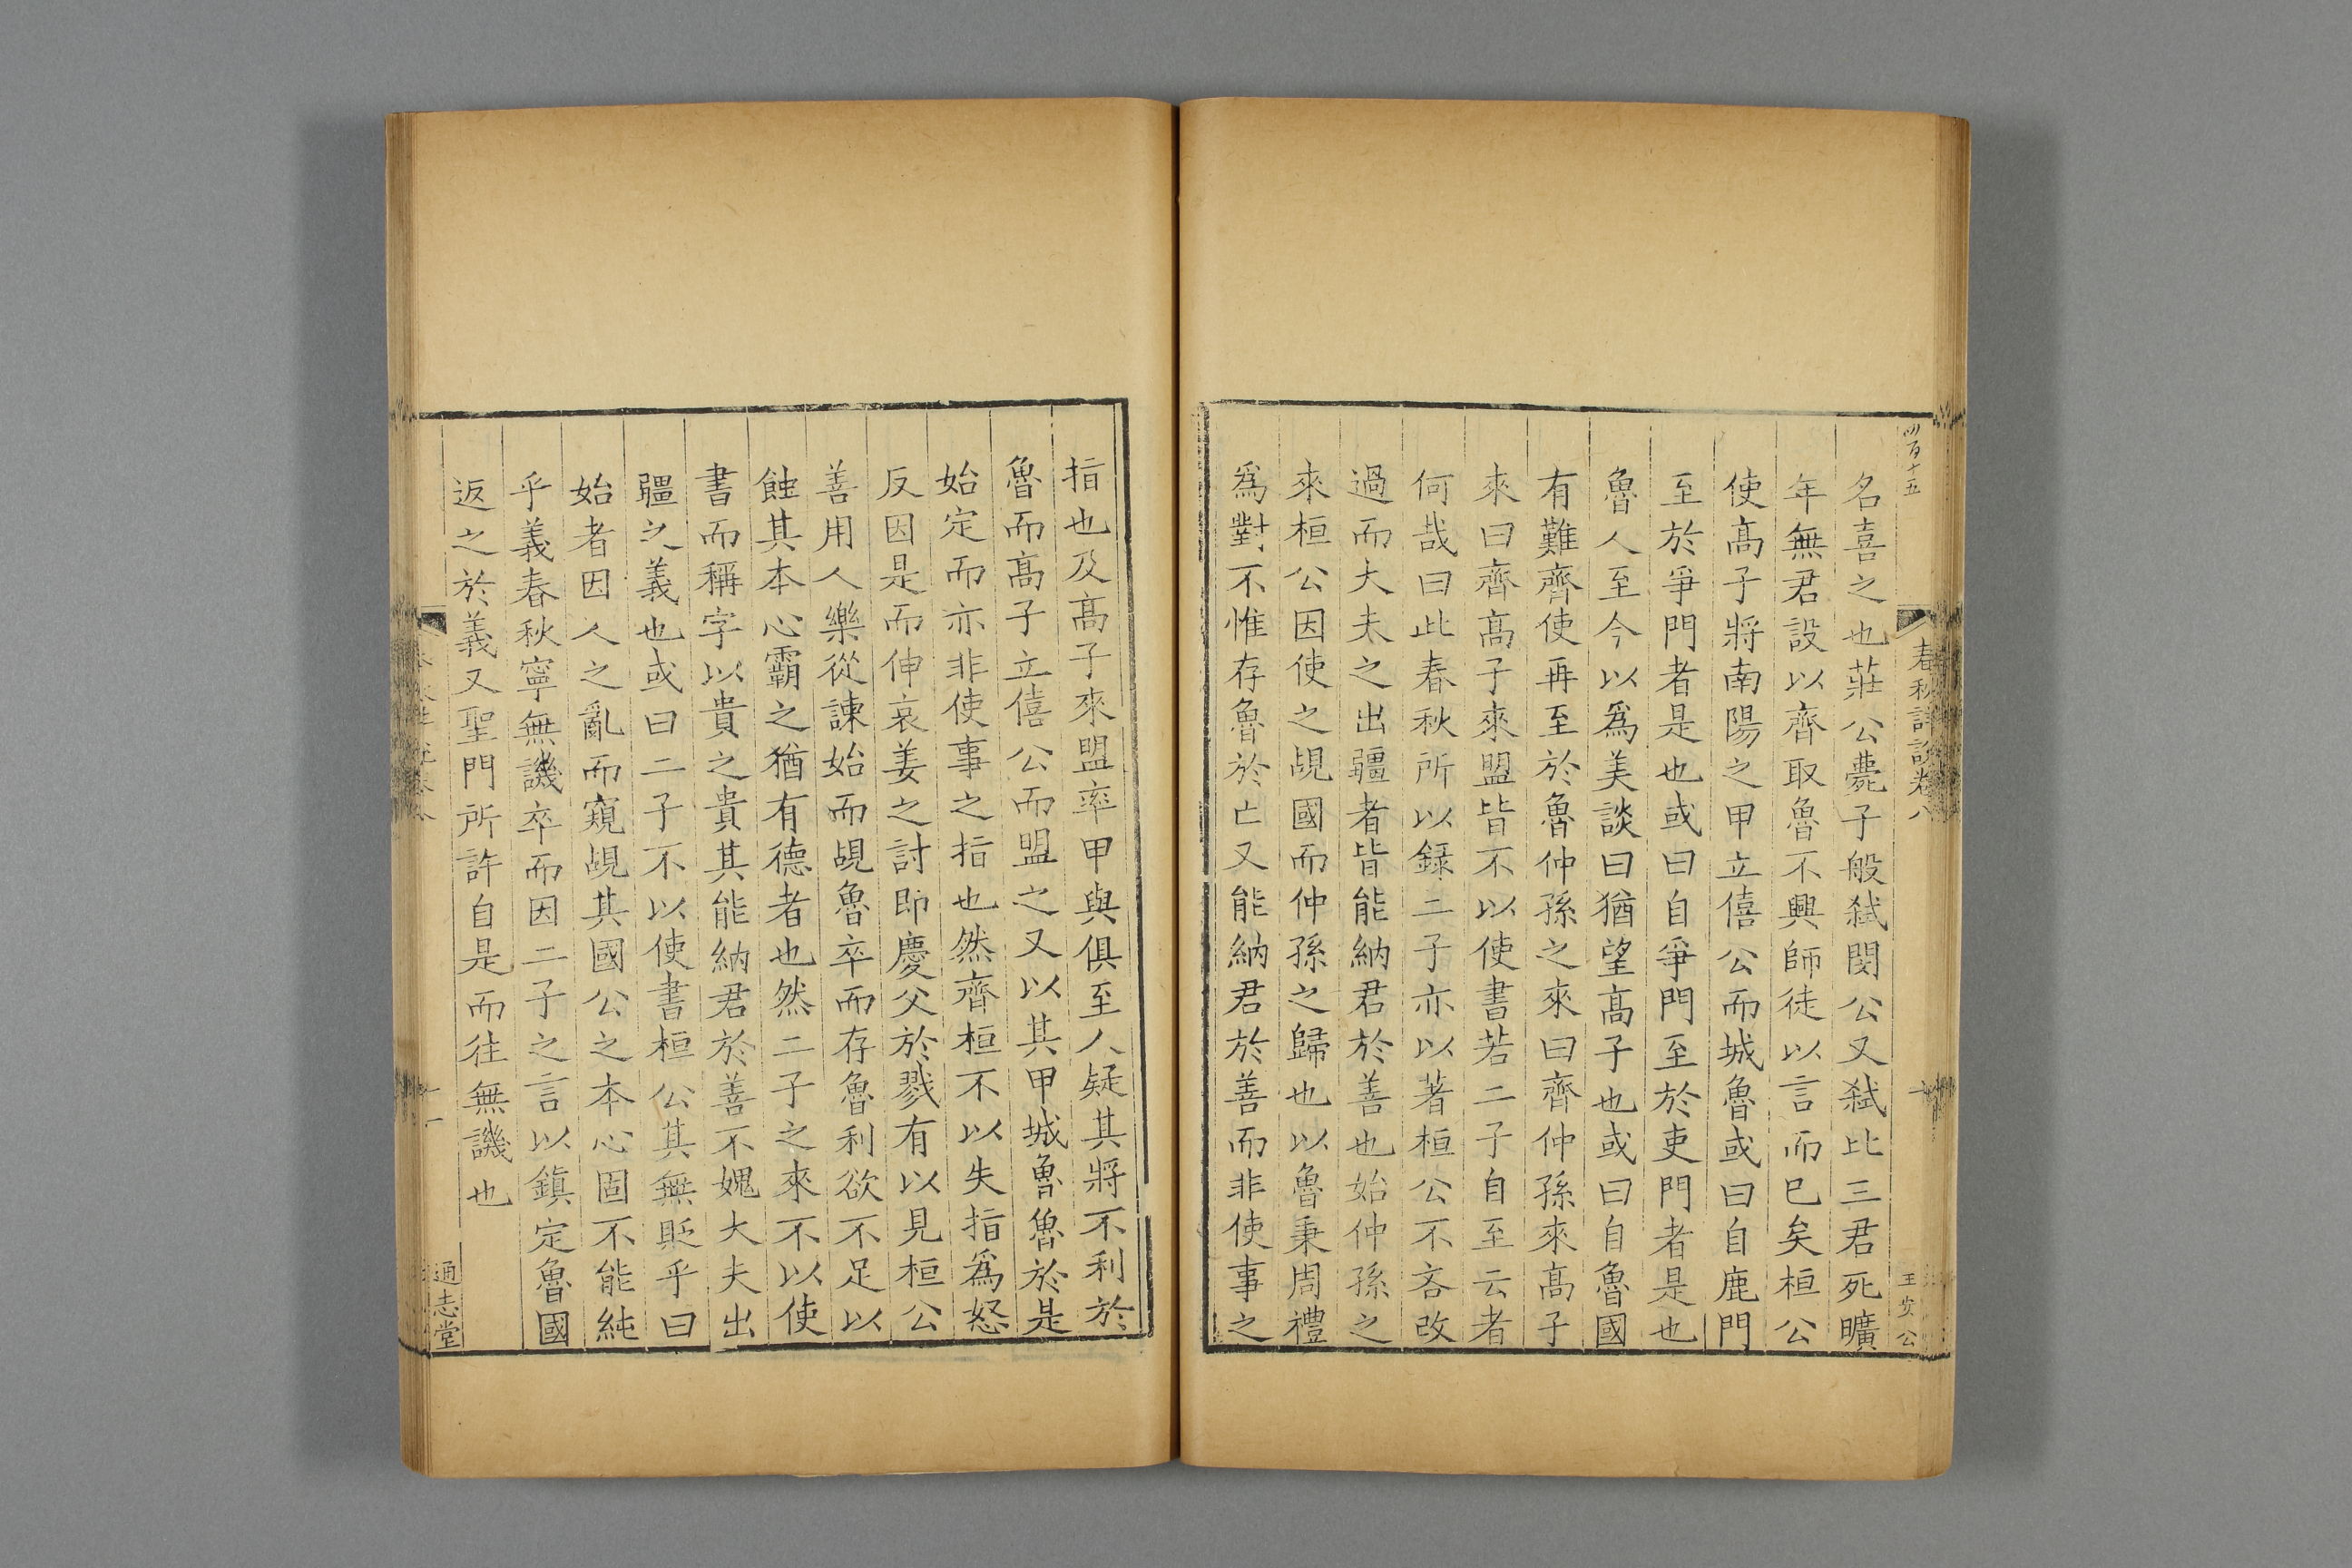 四百十五
春秋詳說卷八
王公
名喜之也莊公薨子般弑閔公又弑比三君死曠
年無君設以齊取魯不興師徒以言而巳矣桓公
使髙子將南陽之甲立僖公而城魯或曰自鹿門
至於爭門者是也或曰自爭門至於吏門者是也
魯人至今以爲美談曰猶望髙子也或曰自魯國
有難齊使再至於魯仲孫之來曰齊仲孫來髙子
來曰齊髙子來盟皆不以使書若二子自至云者
何哉曰此春秋所以録二子亦以著桓公不吝改
過而大夫之出疆者皆能納君於善也始仲孫之
來桓公因使之覘國而仲孫之歸也以魯秉周禮
爲對不惟存魯於亡又能納君於善而非使事之
指也及髙子來盟率甲與俱至人疑其將不利於
魯而髙子立僖公而盟之又以其甲城魯魯於是
始定而亦非使事之指也然齊桓不以失指爲怒
反因是而伸哀姜之討即慶父於戮有以見桓公
善用人樂從諫始而覘魯卒而存魯利欲不足以
蝕其本心霸之猶有德者也然二子之來不以使
書而稱字以貴之貴其能納君於善不媿大夫出
疆之義也或曰二子不以使書桓公其無貶乎曰
始者因人之亂而窺覘其國公之本心固不能純
乎義春秋寧無譏卒而因二子之言以鎮定魯國
返之於義又聖門所許自是而往無譏也
通志堂